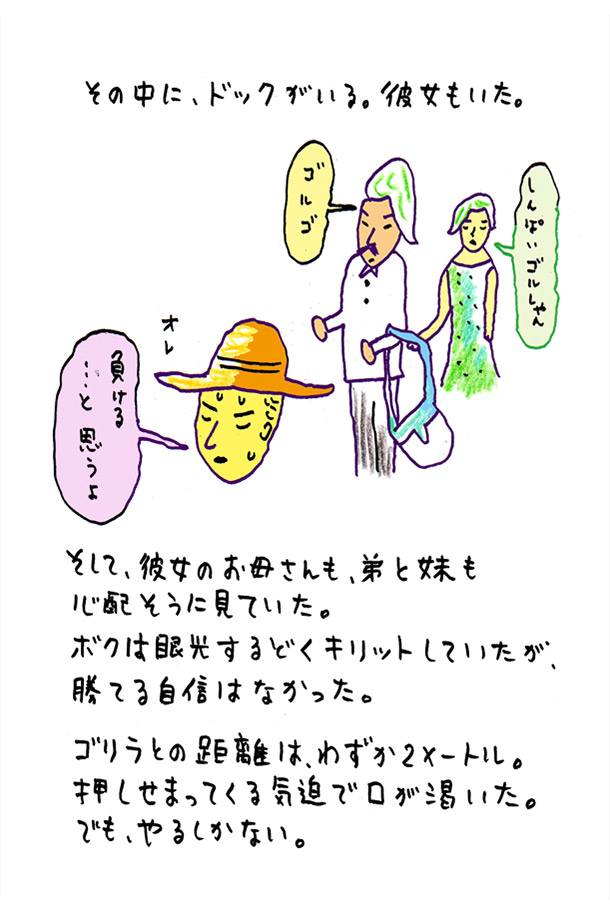 その中に、ドックがいる。彼女もいた。
ゴルゴ
しんぱいゴルしゃん
オレ
負ける
…と思うよ
そして、彼女のお母さんも、弟と妹も
心配そうに見ていた。
ボクは眼光するどくキリットしていたが、
勝てる自信はなかった。
ゴリラとの距離は、わずか2メートル。
押しせまってくる気迫で口が渇いた。
でも、やるしかない。